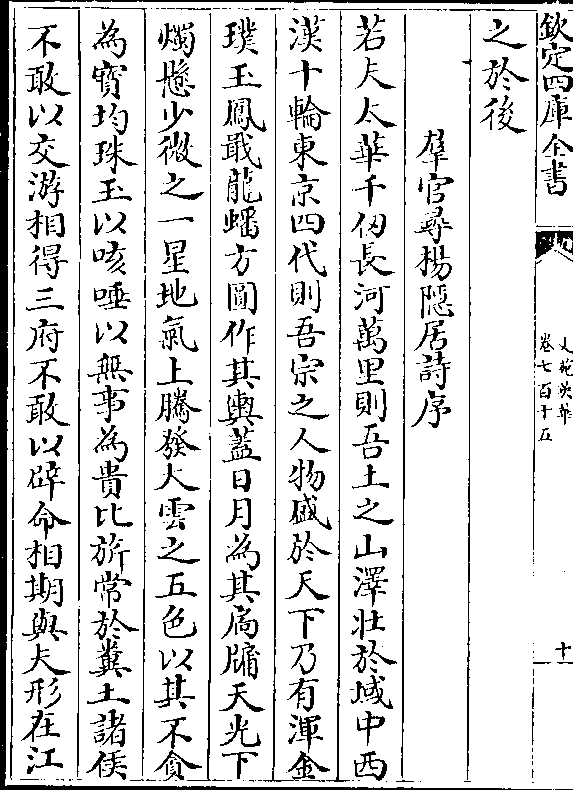 欽定四庫全書
文苑英華
卷七百十五
十
之於後
羣官尋楊隱居詩序
若夫太華千仞長河萬里則吾土之山澤壯於域中西
漢十輪東京四代則吾宗之人物盛於天下乃有渾金
璞玉鳳戢龍蟠方圓作其輿蓋日月為其扃牖天光下
燭懸少微之一星地氣上騰發大雲之五色以其不貪
為寳均珠玉以咳唾以無事為貴比旂常於糞土諸侯
不敢以交游相得三府不敢以辟命相期與夫形在江